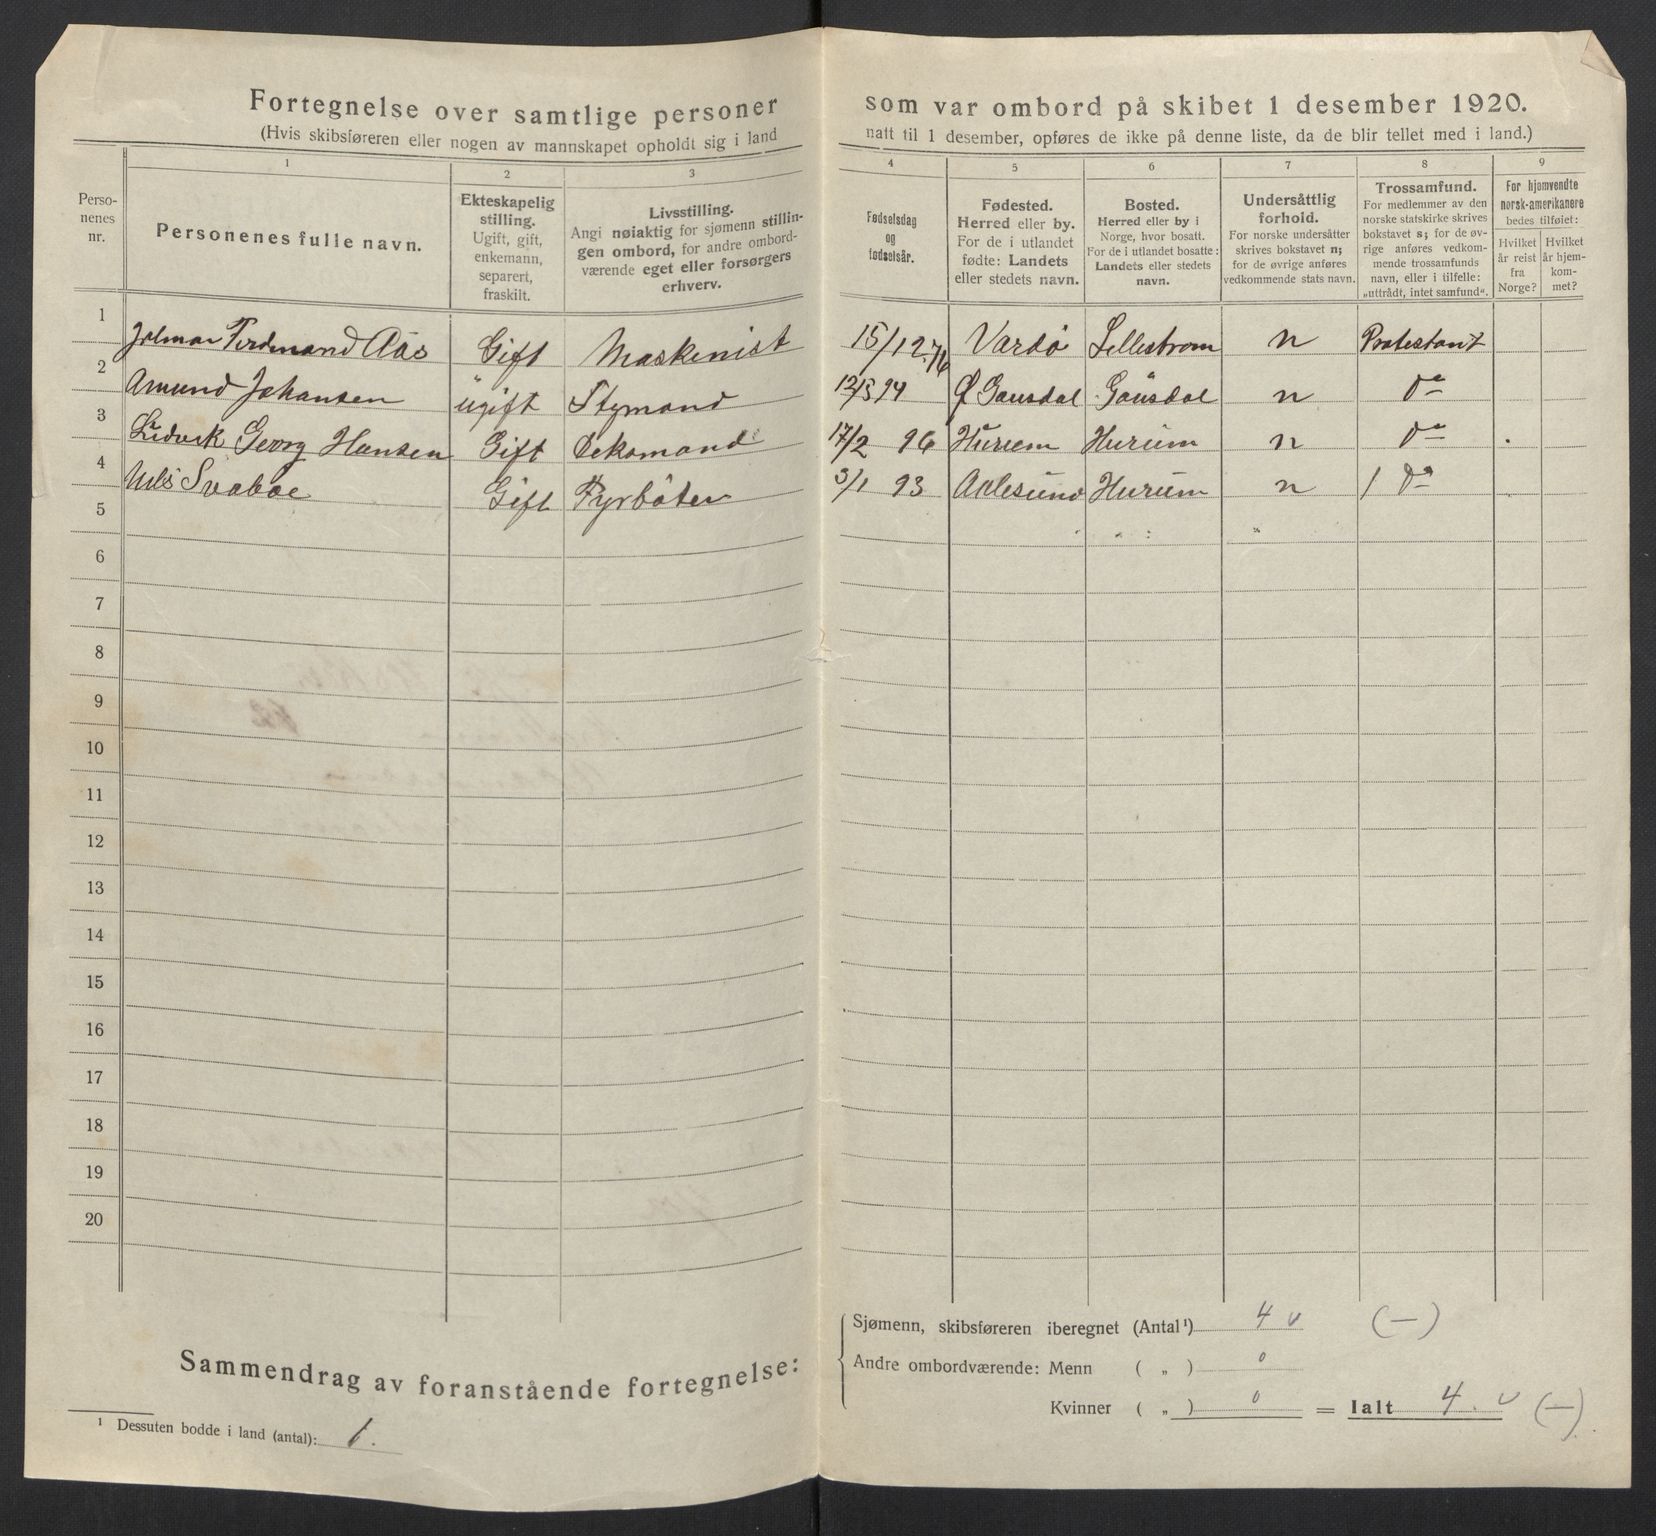 Fortegnelse over samtlige personer som var ombord på skibet 1 desember 1920.
(Hvis skibsføreren eller nogen av mannskapet opholdt sig i land natt til 1 desember, opføres de ikke på denne liste, da de blir tellet med i land.)
1 2 3 4 5 6 7 8 9
Perso-
nenes
nr.
Personenes fulle navn.
Ekteskapelig
stilling.
Ugift, gift,
enkemann,
separert,
fraskilt.
Livsstilling.
Angi nøiaktig for sjømenn stillin-
gen ombord, for andre ombord-
værende eget eller forsørgers
erhverv.
Fødselsdag
og
fødselsår.
Fødested.
Herred eller by.
For de i utlandet
fødte: Landets
eller stedets navn.
Bosted.
Herred eller by i
Norge, hvor bosatt.
For de i utlandet bosatte:
Landets eller stedets
navn.
Undersåttlig
forhold.
For norske undersåtter
skrives bokstavet n;
for de øvrige anføres
vedkommende stats navn.
Trossamfund.
For medlemmer av den
norske statskirke skrives
bokstavet s; for de øv-
rige anføres vedkom-
mende trossamfunds
navn, eller i tilfelle:
„uttrådt, intet samfund“.
For hjemvendte
norsk-amerikanere
bedes tilføiet:
Hvilket
år reist
fra
Norge?
Hvilket
år hjem-
kom-
met?
1 Jalmar Ferdinand Aas Gift Maskenist 15/12.76 Vardö Lellestrom n Protestant
2 Amund Johansen ugift Stymand 12/5 94 Ø Gausdal Gausdal n do
3 Ludvik Georg Hansen Gift Deksmand 17/2 96 Hurum Hurum n do
4 Nils Svaboe Gift Fyrböter 3/1 93 Aalesund Hurum n do
5
6
7
8
9
10
11
12
13
14
15
16
17
18
19
20
Sammendrag av foranstående fortegnelse:
Sjømenn, skibsføreren iberegnet (Antal¹) 4 v (—)
Andre ombordværende: Menn ( „ ) 0
Kvinner ( „ ) 0 = Ialt 4. v (—)
¹ Dessuten bodde i land (antal): 1.